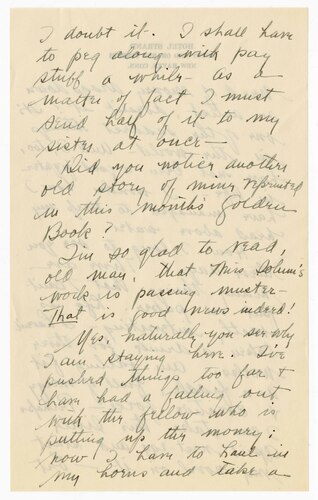 I doubt it. I shall have
to peg along with pay
stuff a while – as a
matter of fact I must
send half of it to my
sister at once –
Did you notice another
old story of mine reprinted
in this month's Golden
Book?
I'm so glad to read,
old man, that Miss
work is passing muster –
That is good news indeed!
Yes, naturally you see why
I am staying here. I've
pushed things too far &
have had a falling out
with the fellow who is
putting up the money;
now I have to haul in
my horns and take a